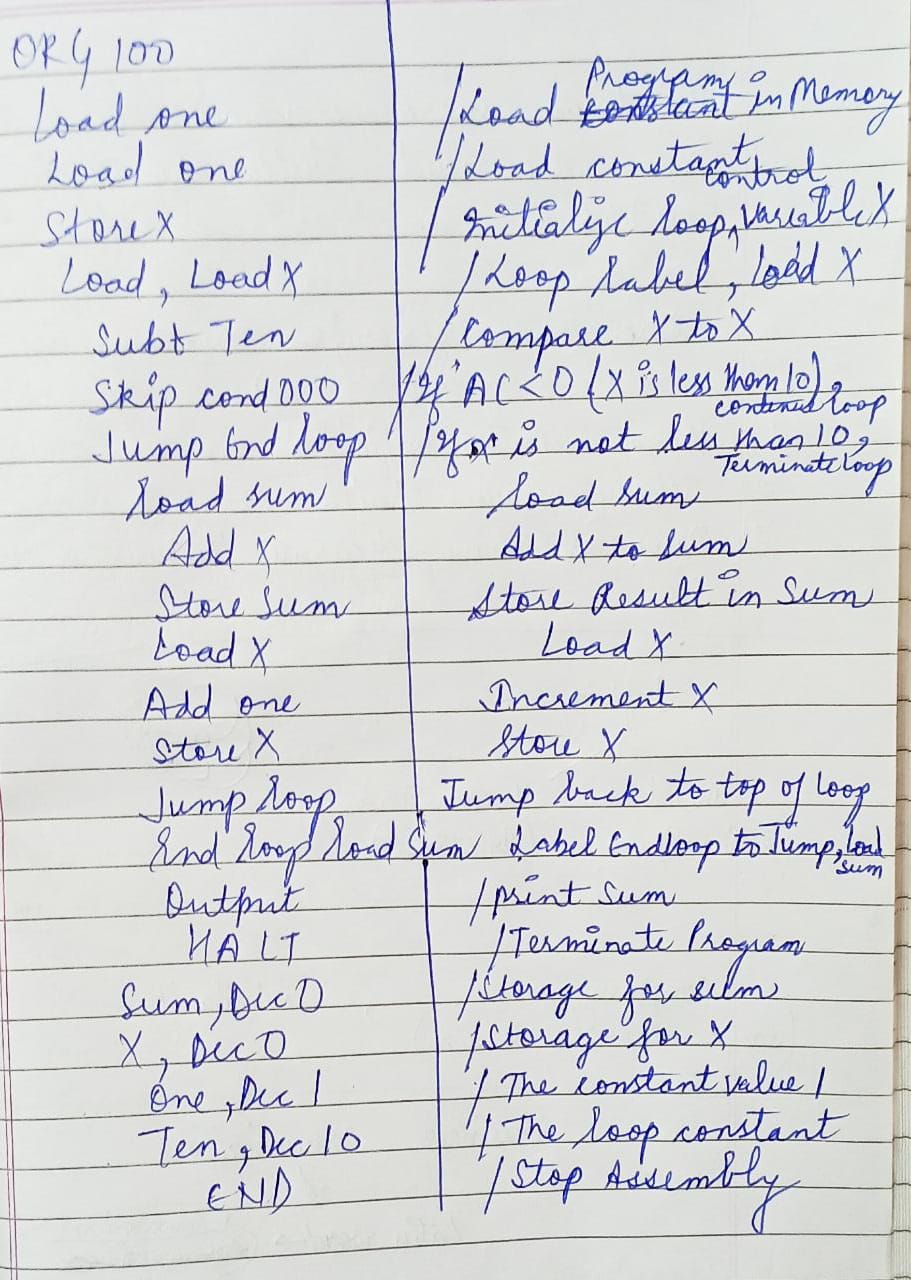 ORG 100
Load one /Load Program in Memory
Load one /Load constant
Store X /Initialize loop control variable X
Load, Load X /Loop label, load X
Subt Ten /Compare X to X
Skip cond 000 /If AC<0 (X is less than 10), continue loop
Jump End loop /If x is not less than 10, Terminate loop
load sum load sum
Add X Add X to sum
Store Sum Store Result in Sum
Load X Load X
Add one Increment X
Store X Store X
Jump loop Jump back to top of loop
End loop load Sum Label Endloop to Jump, load sum
Output /print Sum
HALT /Terminate Program
Sum, Dec 0 /Storage for sum
X, Dec 0 /Storage for X
One, Dec 1 /The constant value 1
Ten, Dec 10 /The loop constant
END /Stop Assembly